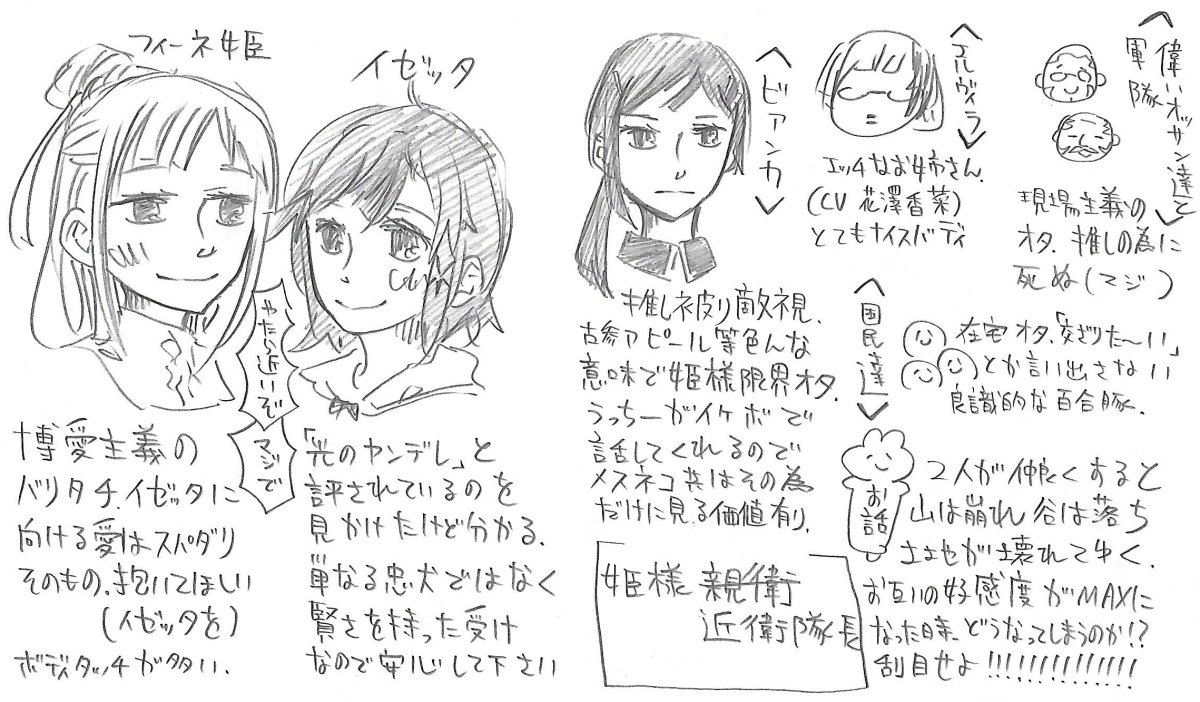 フィーネ姫
イゼッタ
やたら近いぞ
マジで
博愛主義の
バリタチ.イゼッタに
向ける愛はスパダリ
そのもの.抱いてほしい
(イゼッタを)
ボディタッチが多い.
「光のヤンデレ」と
評されているのを
見かけたけど分かる.
単なる忠犬ではなく
賢さを持った受け
なので安心して下さい
<ビアンカ>
推しネ皮り敵視.
古参アピール等色んな
意味で姫様限界オタ.
うっちーがイケボで
話してくれるので
メスネコ共はその為
だけに見る価値有り.
姫様親衛
近衛隊長
<エルヴィラ>
エッチなお姉さん.
(CV 花澤香菜)
とてもナイスバディ
<偉いオッサン達と
軍隊>
現場主義の
オタ.推しの為に
死ぬ(マジ)
<国民達>
在宅オタ.「交ざりた〜い」
とか言い出さない
良識的な百合豚.
お話
2人が仲良くすると
山は崩れ谷は落ち
土地が壊れてゆく.
お互いの好感度がMAXに
なった時、どうなってしまうのか!?
刮目せよ!!!!!!!!!!!!!!